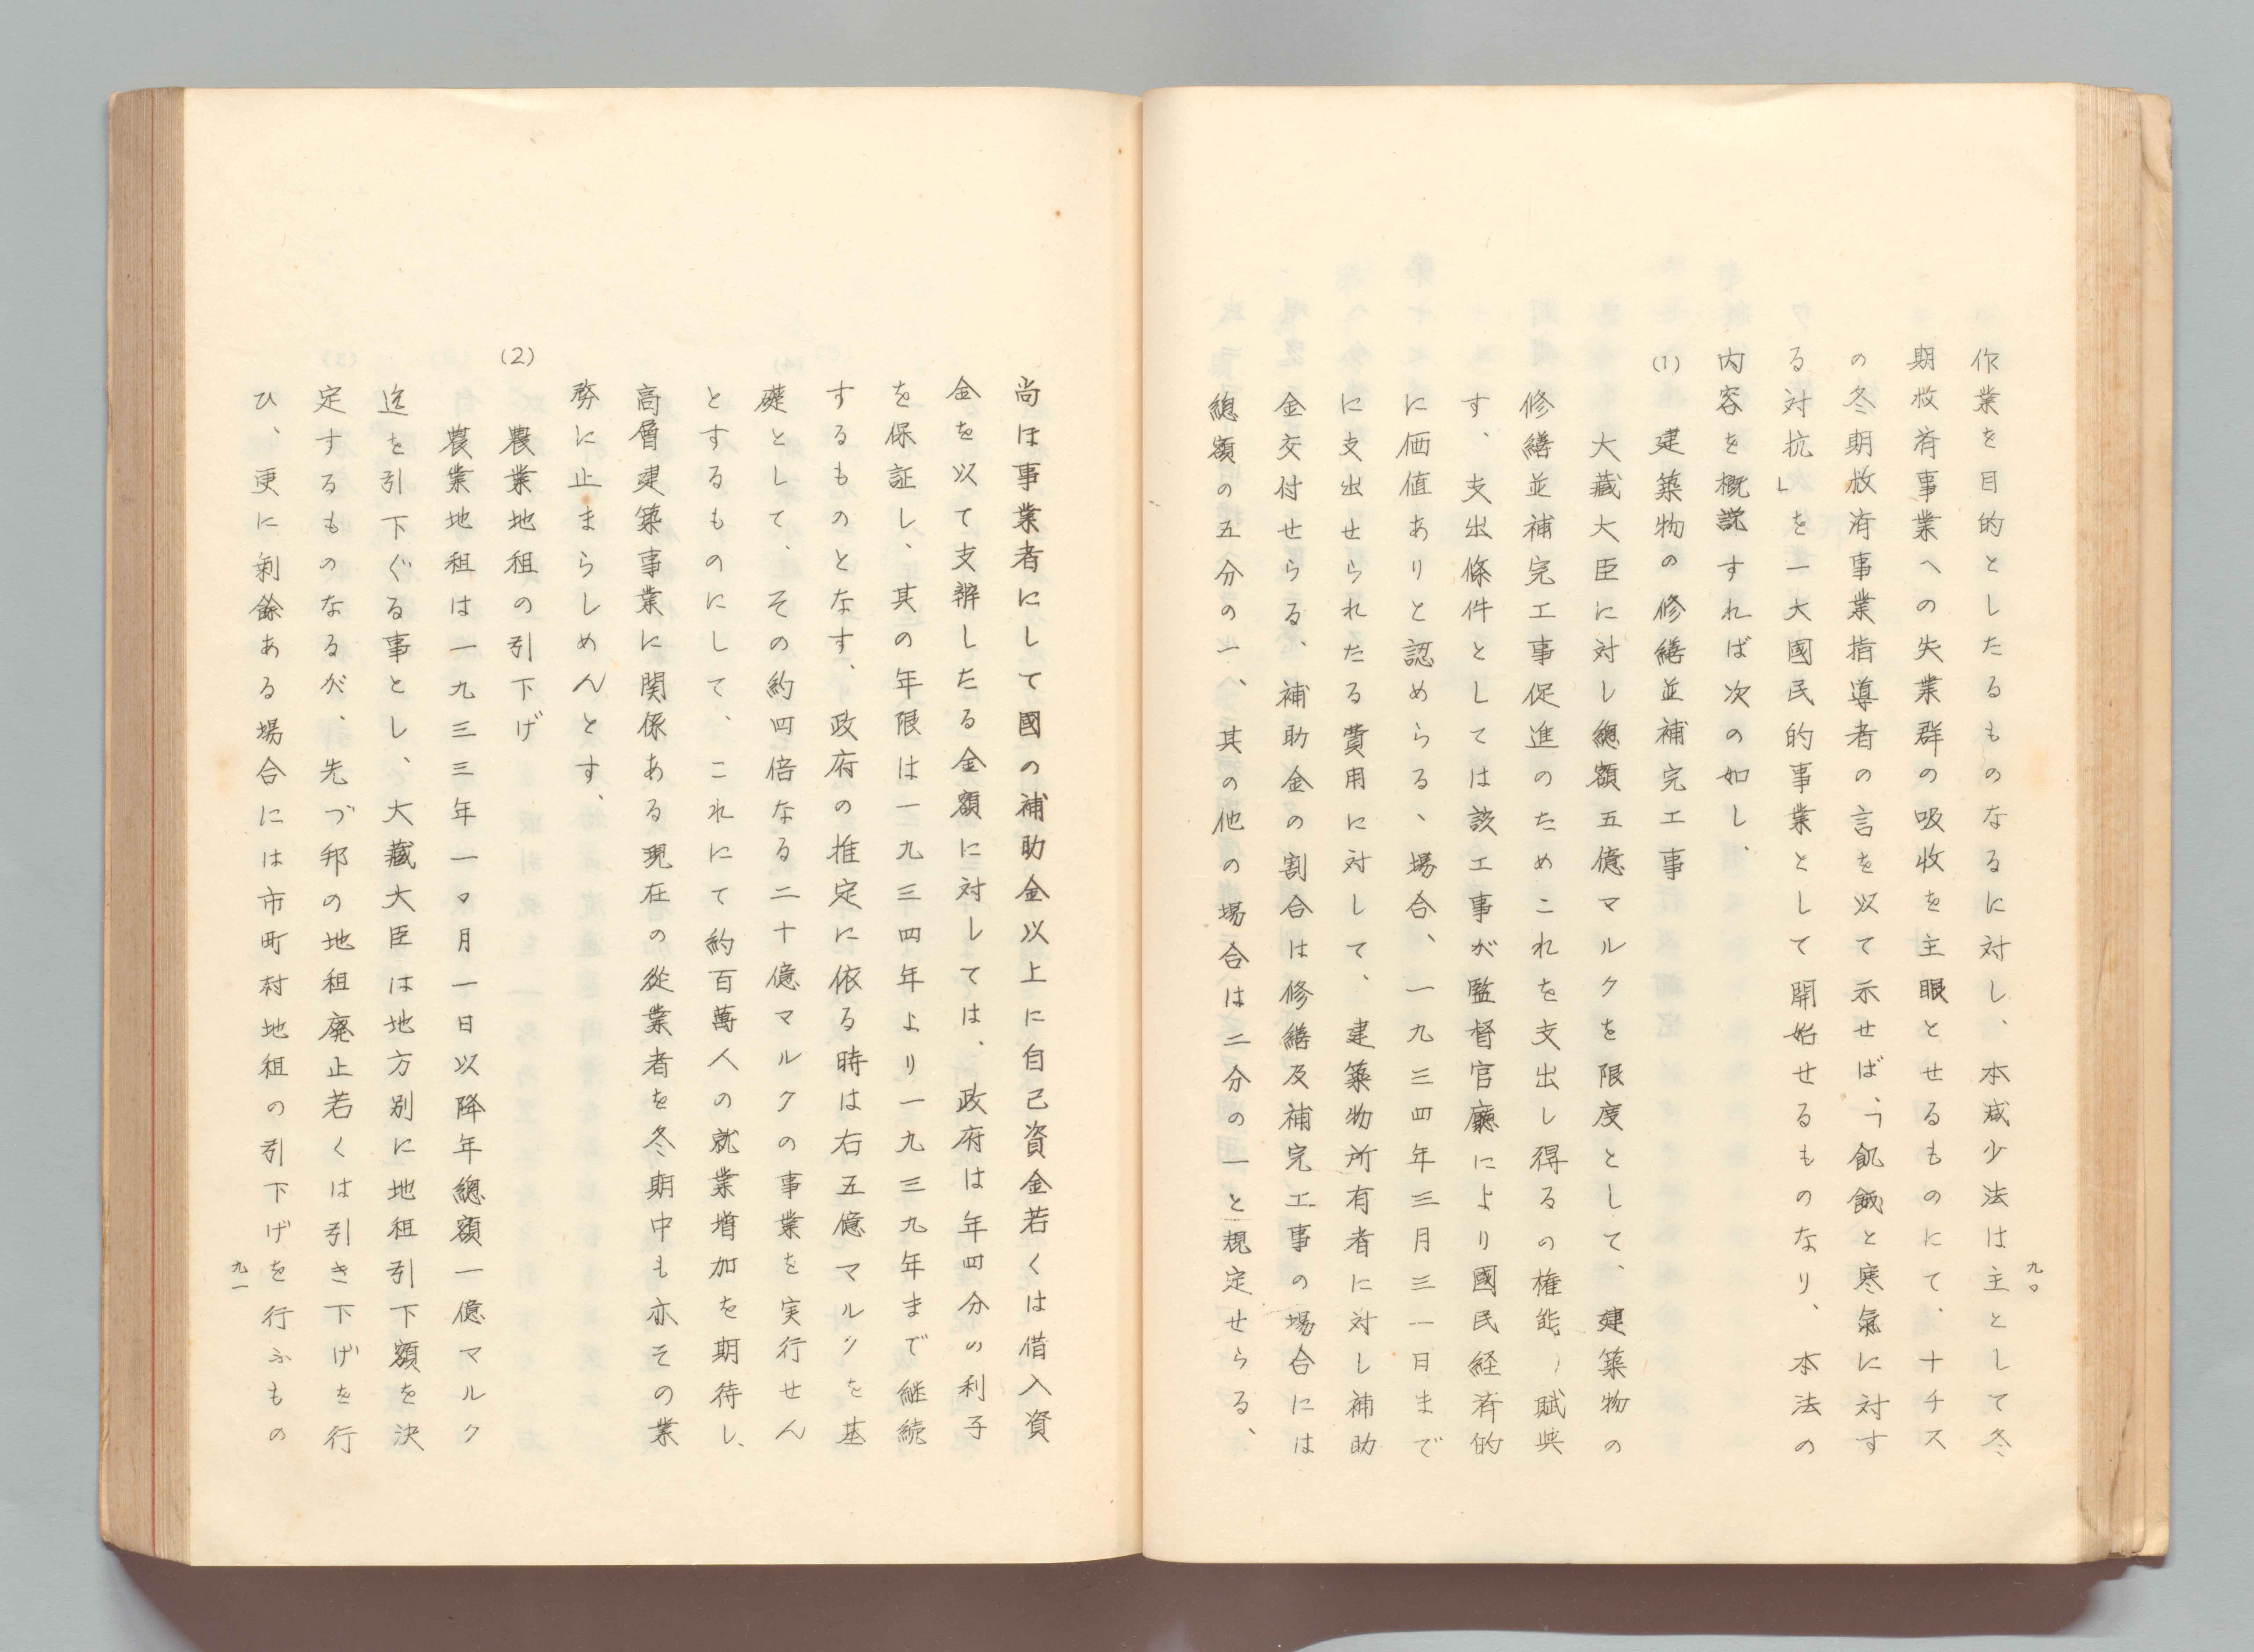 作業を目的としたるものなるに対し、本減少法は主として冬
期救済事業への失業群の吸收を主眼とせるものにて、ナチス
の冬期救済事業指導者の言を以て示せば、「飢餓と寒氣に対す
る対抗」を一大國民的事業として開始せるものなり、本法の
内容を概説すれば次の如し、
(1) 建築物の修繕並補完工事
大藏大臣に対し總額五億マルクを限度として、建築物の
修繕並補完工事促進のためこれを支出し得るの権能を賦与
す、支出條件としては該工事が監督官廳により國民経済的
に価値ありと認めらる、場合、一九三四年三月三一日まで
に支出せられたる費用に対して、建築物所有者に対し補助
金交付せらる、補助金の割合は修繕及補完工事の場合には
總額の五分の一、其の他の場合は二分の一と規定せらる、
九〇
尚ほ事業者にして國の補助金以上に自己資金若くは借入資
金を以て支辨したる金額に対しては、政府は年四分の利子
を保証し、其の年限は一九三四年より一九三九年まで継続
するものとなす、政府の推定に依る時は右五億マルクを基
礎として、その約四倍なる二十億マルクの事業を実行せん
とするものにして、これにて約百萬人の就業増加を期待し、
高層建築事業に関係ある現在の從業者を冬期中も亦その業
務に止まらしめんとす、
(2) 農業地租の引下げ
農業地租は一九三三年一〇月一日以降年總額一億マルク
迄を引下ぐる事とし、大藏大臣は地方別に地租引下額を決
定するものなるが、先づ邦の地租廃止若くは引き下げを行
ひ、更に剰餘ある場合には市町村地租の引下げを行ふもの
九一